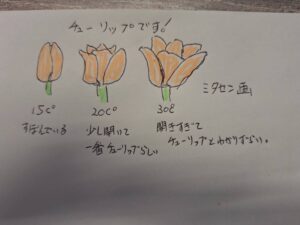 チューリップです!
15c°
20c°
30c
ミタセン画
すぼんでいる
少し開いて
一番チューリップらしい
開きすぎて
チューリップとわかりずらい。